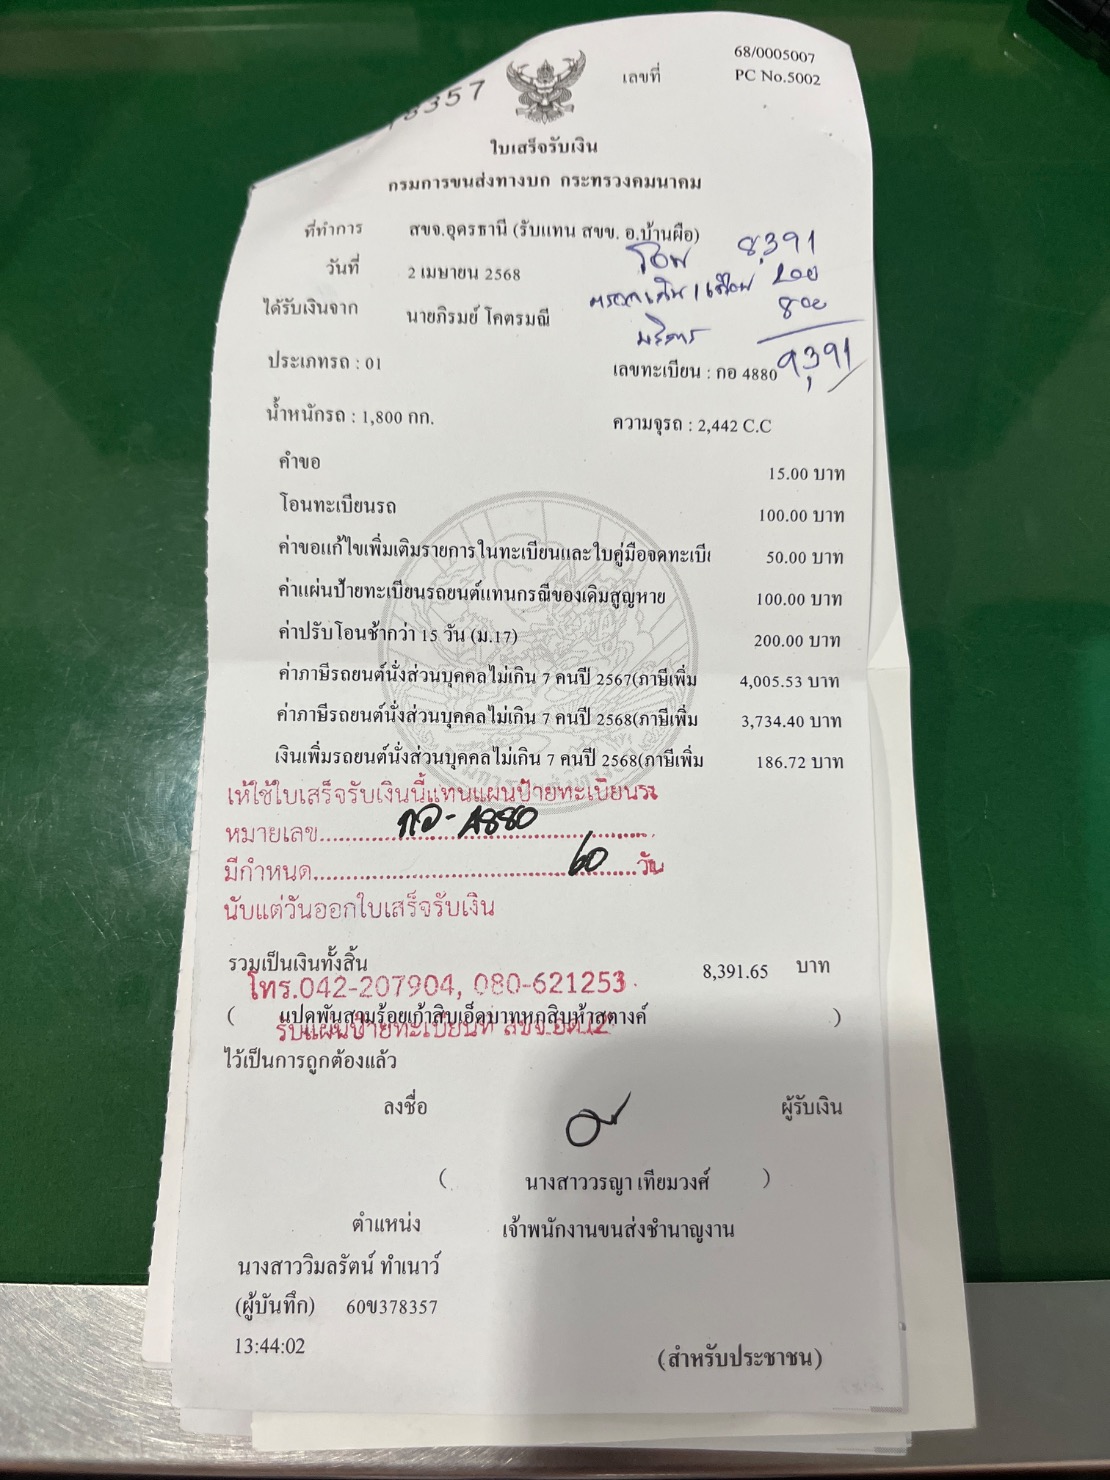 68/0005007
เลขที่ PC No.5002
8357
ใบเสร็จรับเงิน
กรมการขนส่งทางบก กระทรวงคมนาคม
ที่ทำการ สขจ.อุดรธานี (รับแทน สขข. อ.บ้านผือ)
โอน 8,391
วันที่ 2 เมษายน 2568
200
800
ได้รับเงินจาก นายภิรมย์ โคตรมณี
บริการ
9,391
ประเภทรถ : 01 เลขทะเบียน : กอ 4880
น้ำหนักรถ : 1,800 กก. ความจุรถ : 2,442 C.C
คำขอ 15.00 บาท
โอนทะเบียนรถ 100.00 บาท
ค่าขอแก้ไขเพิ่มเติมรายการในทะเบียนและใบคู่มือจดทะเบี 50.00 บาท
ค่าแผ่นป้ายทะเบียนรถยนต์แทนกรณีของเดิมสูญหาย 100.00 บาท
ค่าปรับโอนช้ากว่า 15 วัน (ม.17) 200.00 บาท
ค่าภาษีรถยนต์นั่งส่วนบุคคลไม่เกิน 7 คนปี 2567(ภาษีเพิ่ม 4,005.53 บาท
ค่าภาษีรถยนต์นั่งส่วนบุคคลไม่เกิน 7 คนปี 2568(ภาษีเพิ่ม 3,734.40 บาท
เงินเพิ่มรถยนต์นั่งส่วนบุคคลไม่เกิน 7 คนปี 2568(ภาษีเพิ่ม 186.72 บาท
ให้ใช้ใบเสร็จรับเงินนี้แทนแผ่นป้ายทะเบียนรถ
หมายเลข กอ-4880
มีกำหนด 60 วัน
นับแต่วันออกใบเสร็จรับเงิน
รวมเป็นเงินทั้งสิ้น 8,391.65 บาท
โทร.042-207904, 080-621253
( แปดพันสามร้อยเก้าสิบเอ็ดบาทหกสิบห้าสตางค์ )
รับแผ่นป้ายทะเบียนที่ สขจ.อด.
ไว้เป็นการถูกต้องแล้ว
ลงชื่อ ผู้รับเงิน
( นางสาววรญา เทียมวงศ์ )
ตำแหน่ง เจ้าพนักงานขนส่งชำนาญงาน
นางสาววิมลรัตน์ ทำเนาว์
(ผู้บันทึก) 60ข378357
13:44:02
(สำหรับประชาชน)